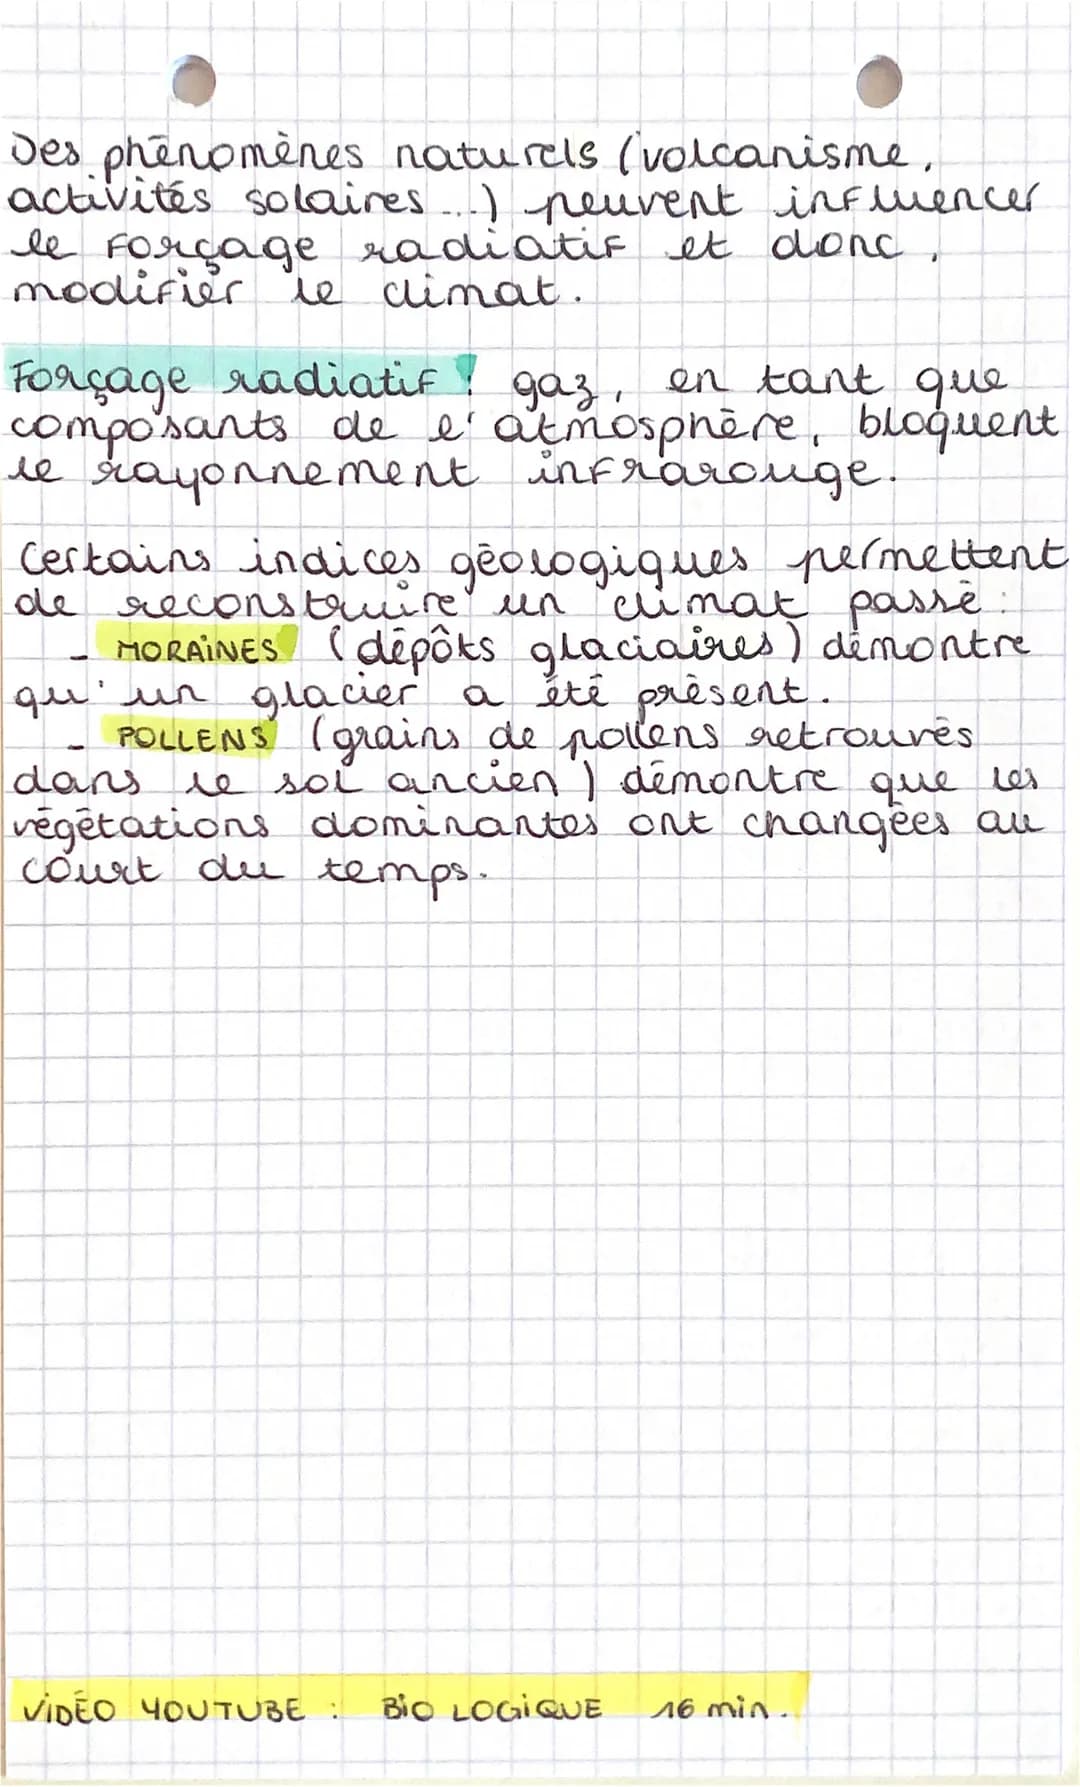 Des phénomènes naturels (volcanisme,
activités solaires...) peuvent influencer
le forçage radiatif et donc,
modifier le climat.
Forçage radiatif : gaz, en tant que
composants de l'atmosphère, bloquent
le rayonnement infrarouge.
Certains indices géologiques permettent
de reconstruire un climat passé :
- MORAINES (dépôts glaciaires) démontre
qu'un glacier a été présent.
- POLLENS (grains de pollens retrouvés
dans le sol ancien) démontre que les
végétations dominantes ont changées au
court du temps.
VIDÉO YOUTUBE : BIO LOGIQUE 16 min.